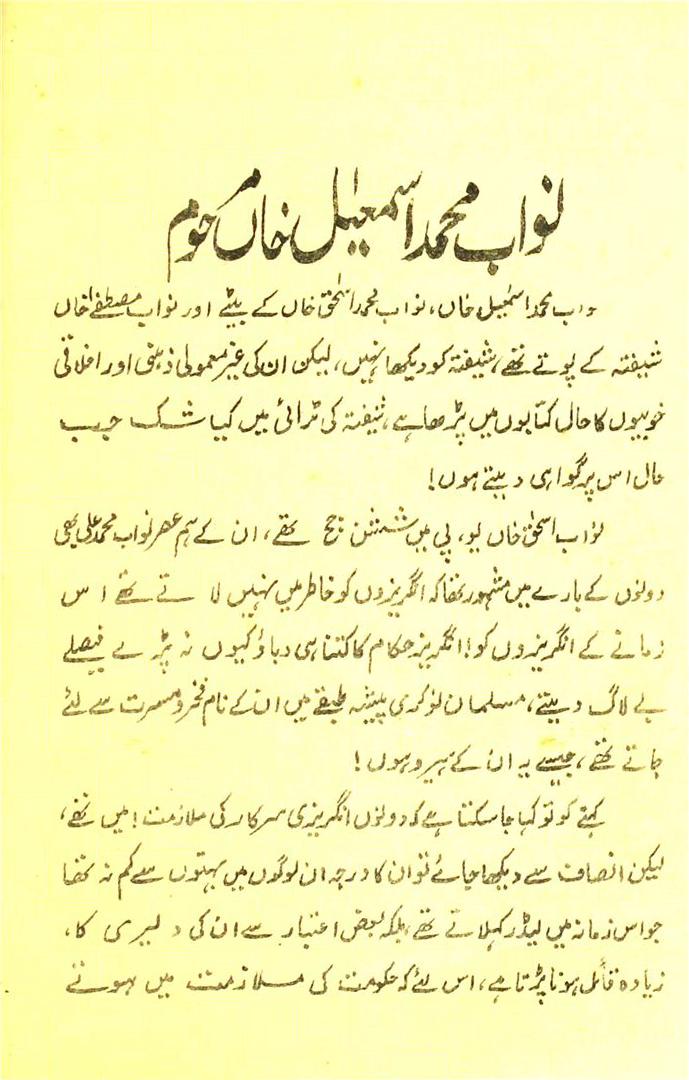 نواب محمد اسمٰعیل خاں مرحوم
واب محمد اسمٰعیل خاں، نواب محمد اسحٰق خاں کے بیٹے اور نواب مصطفےٰ خاں
شیفتہ کے پوتے تھے، شیفتہ کو دیکھا نہیں، لیکن ان کی غیر معمولی ذہنی اور اخلاقی
خوبیوں کا حال کتابوں میں پڑھا ہے، شیفتہ کی بڑائی میں کیا شک جب
حالی اس پر گواہی دیتے ہوں!
نواب اسحٰق خاں یو، پی میں شسشن جج تھے، ان کے ہم عصر نواب محمد علی بھی
دونوں کے بارے میں مشہور تھا کہ انگریزوں کو خاطر میں نہیں لاتے تھے اس
زمانے کے انگریزوں کو! انگریز حکام کا کتنا ہی دباؤ کیوں نہ پڑے فیصلے
بے لاگ دیتے، مسلمان نوکری پیشہ طبقے میں ان کے نام فخر و مسرت سے لئے
جاتے تھے، جیسے یہ ان کے ہیرو ہوں!
کہنے کو تو کہا جا سکتا ہے کہ دونوں انگریزی سرکار کی ملازمت! میں تھے،
لیکن انصاف سے دیکھا جائے تو ان کا درجہ ان لوگوں میں بہتوں سے کم نہ تھا
جو اس زمانہ میں لیڈر کہلاتے تھے، بلکہ بعض اعتبار سے ان کی دلیری کا،
زیادہ قائل ہونا پڑتا ہے، اس لئے کہ حکومت کی ملازمت میں ہوتے